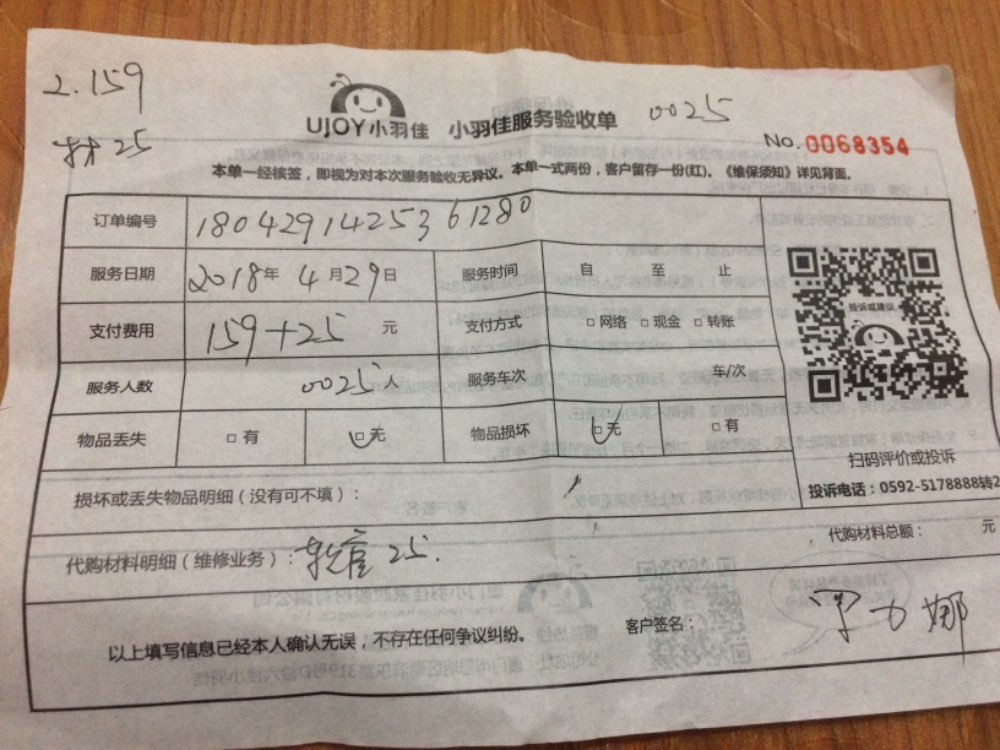 2.159
材25
UJOY小羽佳 小羽佳服务验收单 0025
No. 0068354
本单一经核签，即视为对本次服务验收无异议。本单一式两份，客户留存一份(红)。《维保须知》详见背面。
订单编号 18042914253 61280
服务日期 2018年 4月29日 服务时间 自 至 止
支付费用 159+25 元 支付方式 □网络 □现金 □转账
服务人数 0025 服务车次 车/次
物品丢失 □有 □无 物品损坏 □无 □有
投诉或建议
扫码评价或投诉
投诉电话：0592-5178888转2
损坏或丢失物品明细（没有可不填）：
代购材料明细（维修业务）： 25. 代购材料总额： 元
以上填写信息已经本人确认无误，不存在任何争议纠纷。 客户签名：